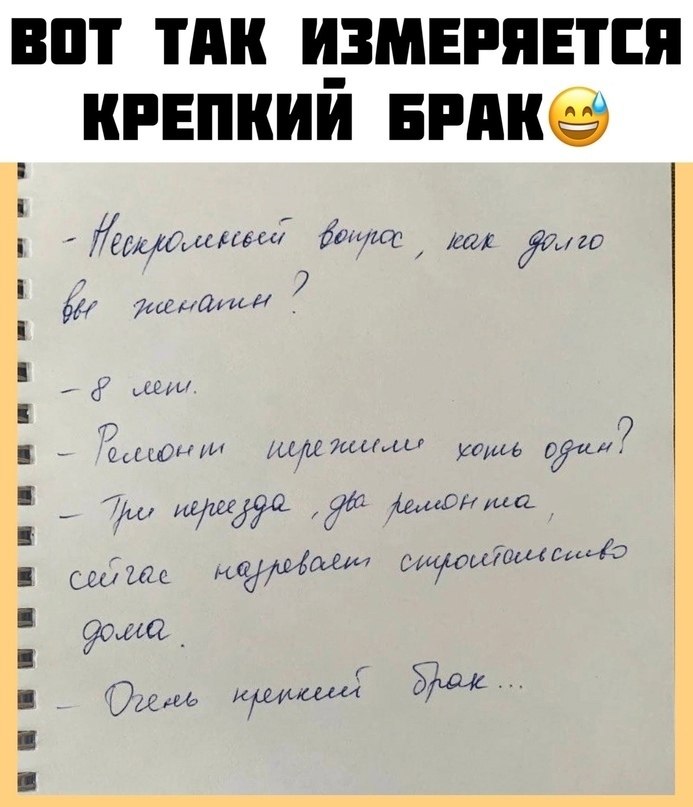 ВОТ ТАК ИЗМЕРЯЕТСЯ
КРЕПКИЙ БРАК😅
- Нескромный вопрос, как долго
вы женаты?
- 8 лет.
- Ремонт пережили хоть один?
- Три переезда, два ремонта,
сейчас назревает строительство
дома.
- Очень крепкий брак...